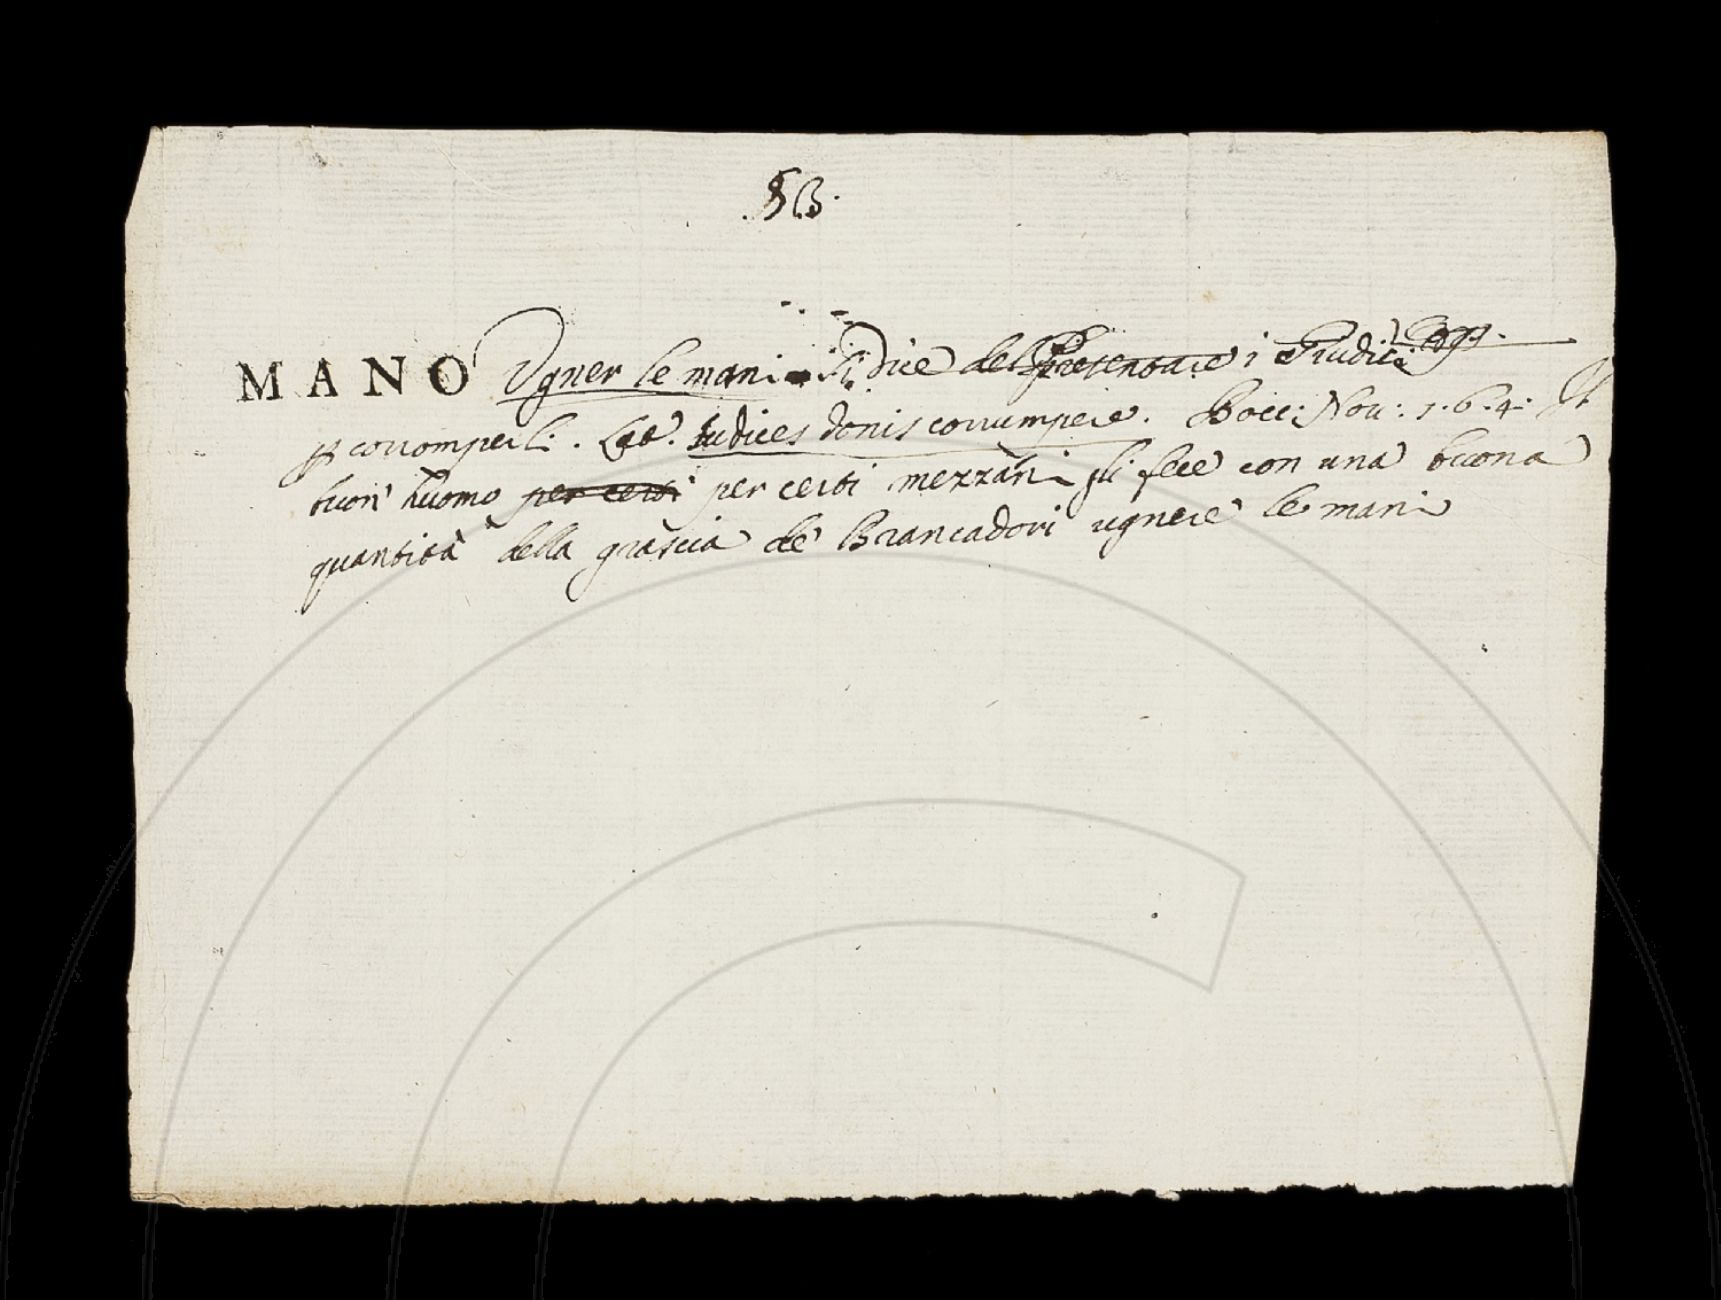 . § B .
MANO Ugner le mani si dice del presentare i Giudici
p corromperli . Lat. Iudices donis corrumpere. Bocc: Nov: 1. 6. 4. Il
buon' huomo per certi per certi mezzani gli fece con una buona
quantità della grascia de' Brancadori ugnere le mani